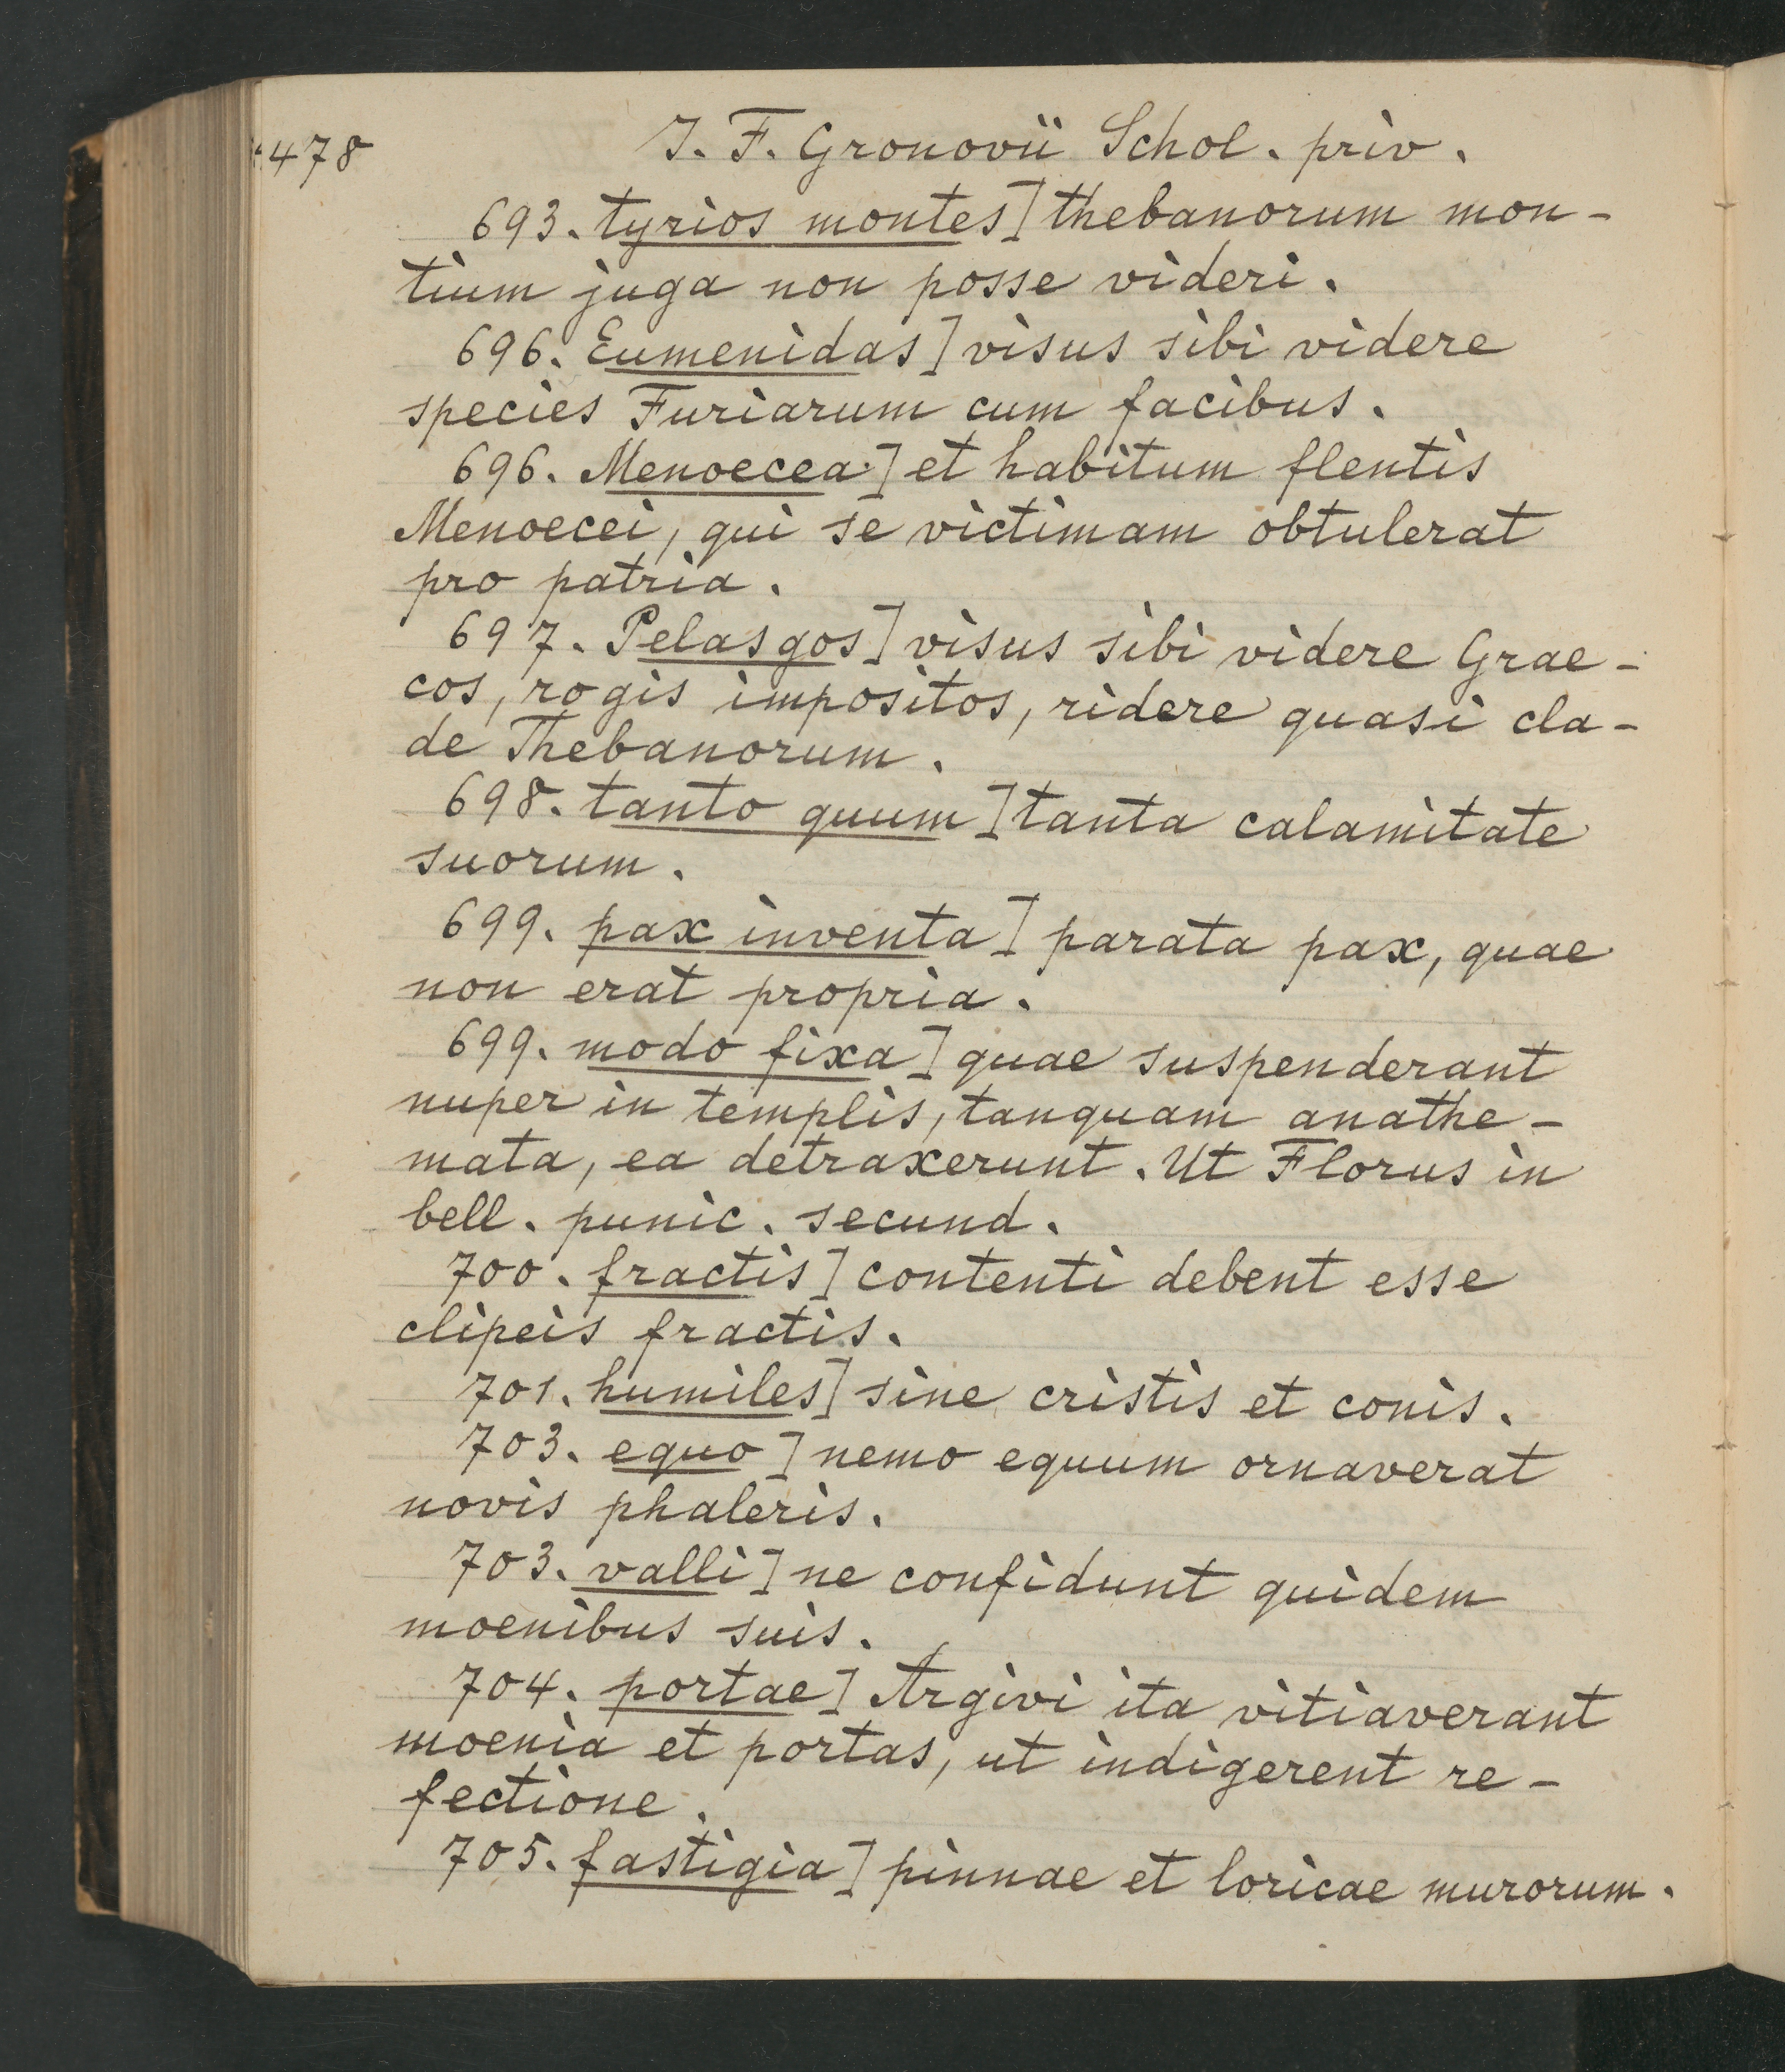 478
J. F. Gronovii Schol. priv.
693. tyrios montes] thebanorum mon-
tium juga non posse videri.
696. Eumenidas] visus sibi videre
species Furiarum cum facibus.
696. Menoecea] et habitum flentis
Menoecei, qui se victimam obtulerat
pro patria.
697. Pelasgos] visus sibi videre Grae-
cos, rogis impositos, ridere quasi cla-
de Thebanorum.
698. tanto quum] tanta calamitate
suorum.
699. pax inventa] parata pax, quae
non erat propria.
699. modo fixa] quae suspenderant
nuper in templis, tanquam anathe-
mata, ea detraxerunt. Ut Florus in
bell. punic. secund.
700. fractis] contenti debent esse
clipeis fractis.
701. humiles] sine cristis et conis.
703. equo] nemo equum ornaverat
novis phaleris.
703. valli] ne confidunt quidem
moenibus suis.
704. portae] Argivi ita vitiaverant
moenia et portas, ut indigerent re-
fectione.
705. fastigia] pinnae et loricae murorum.